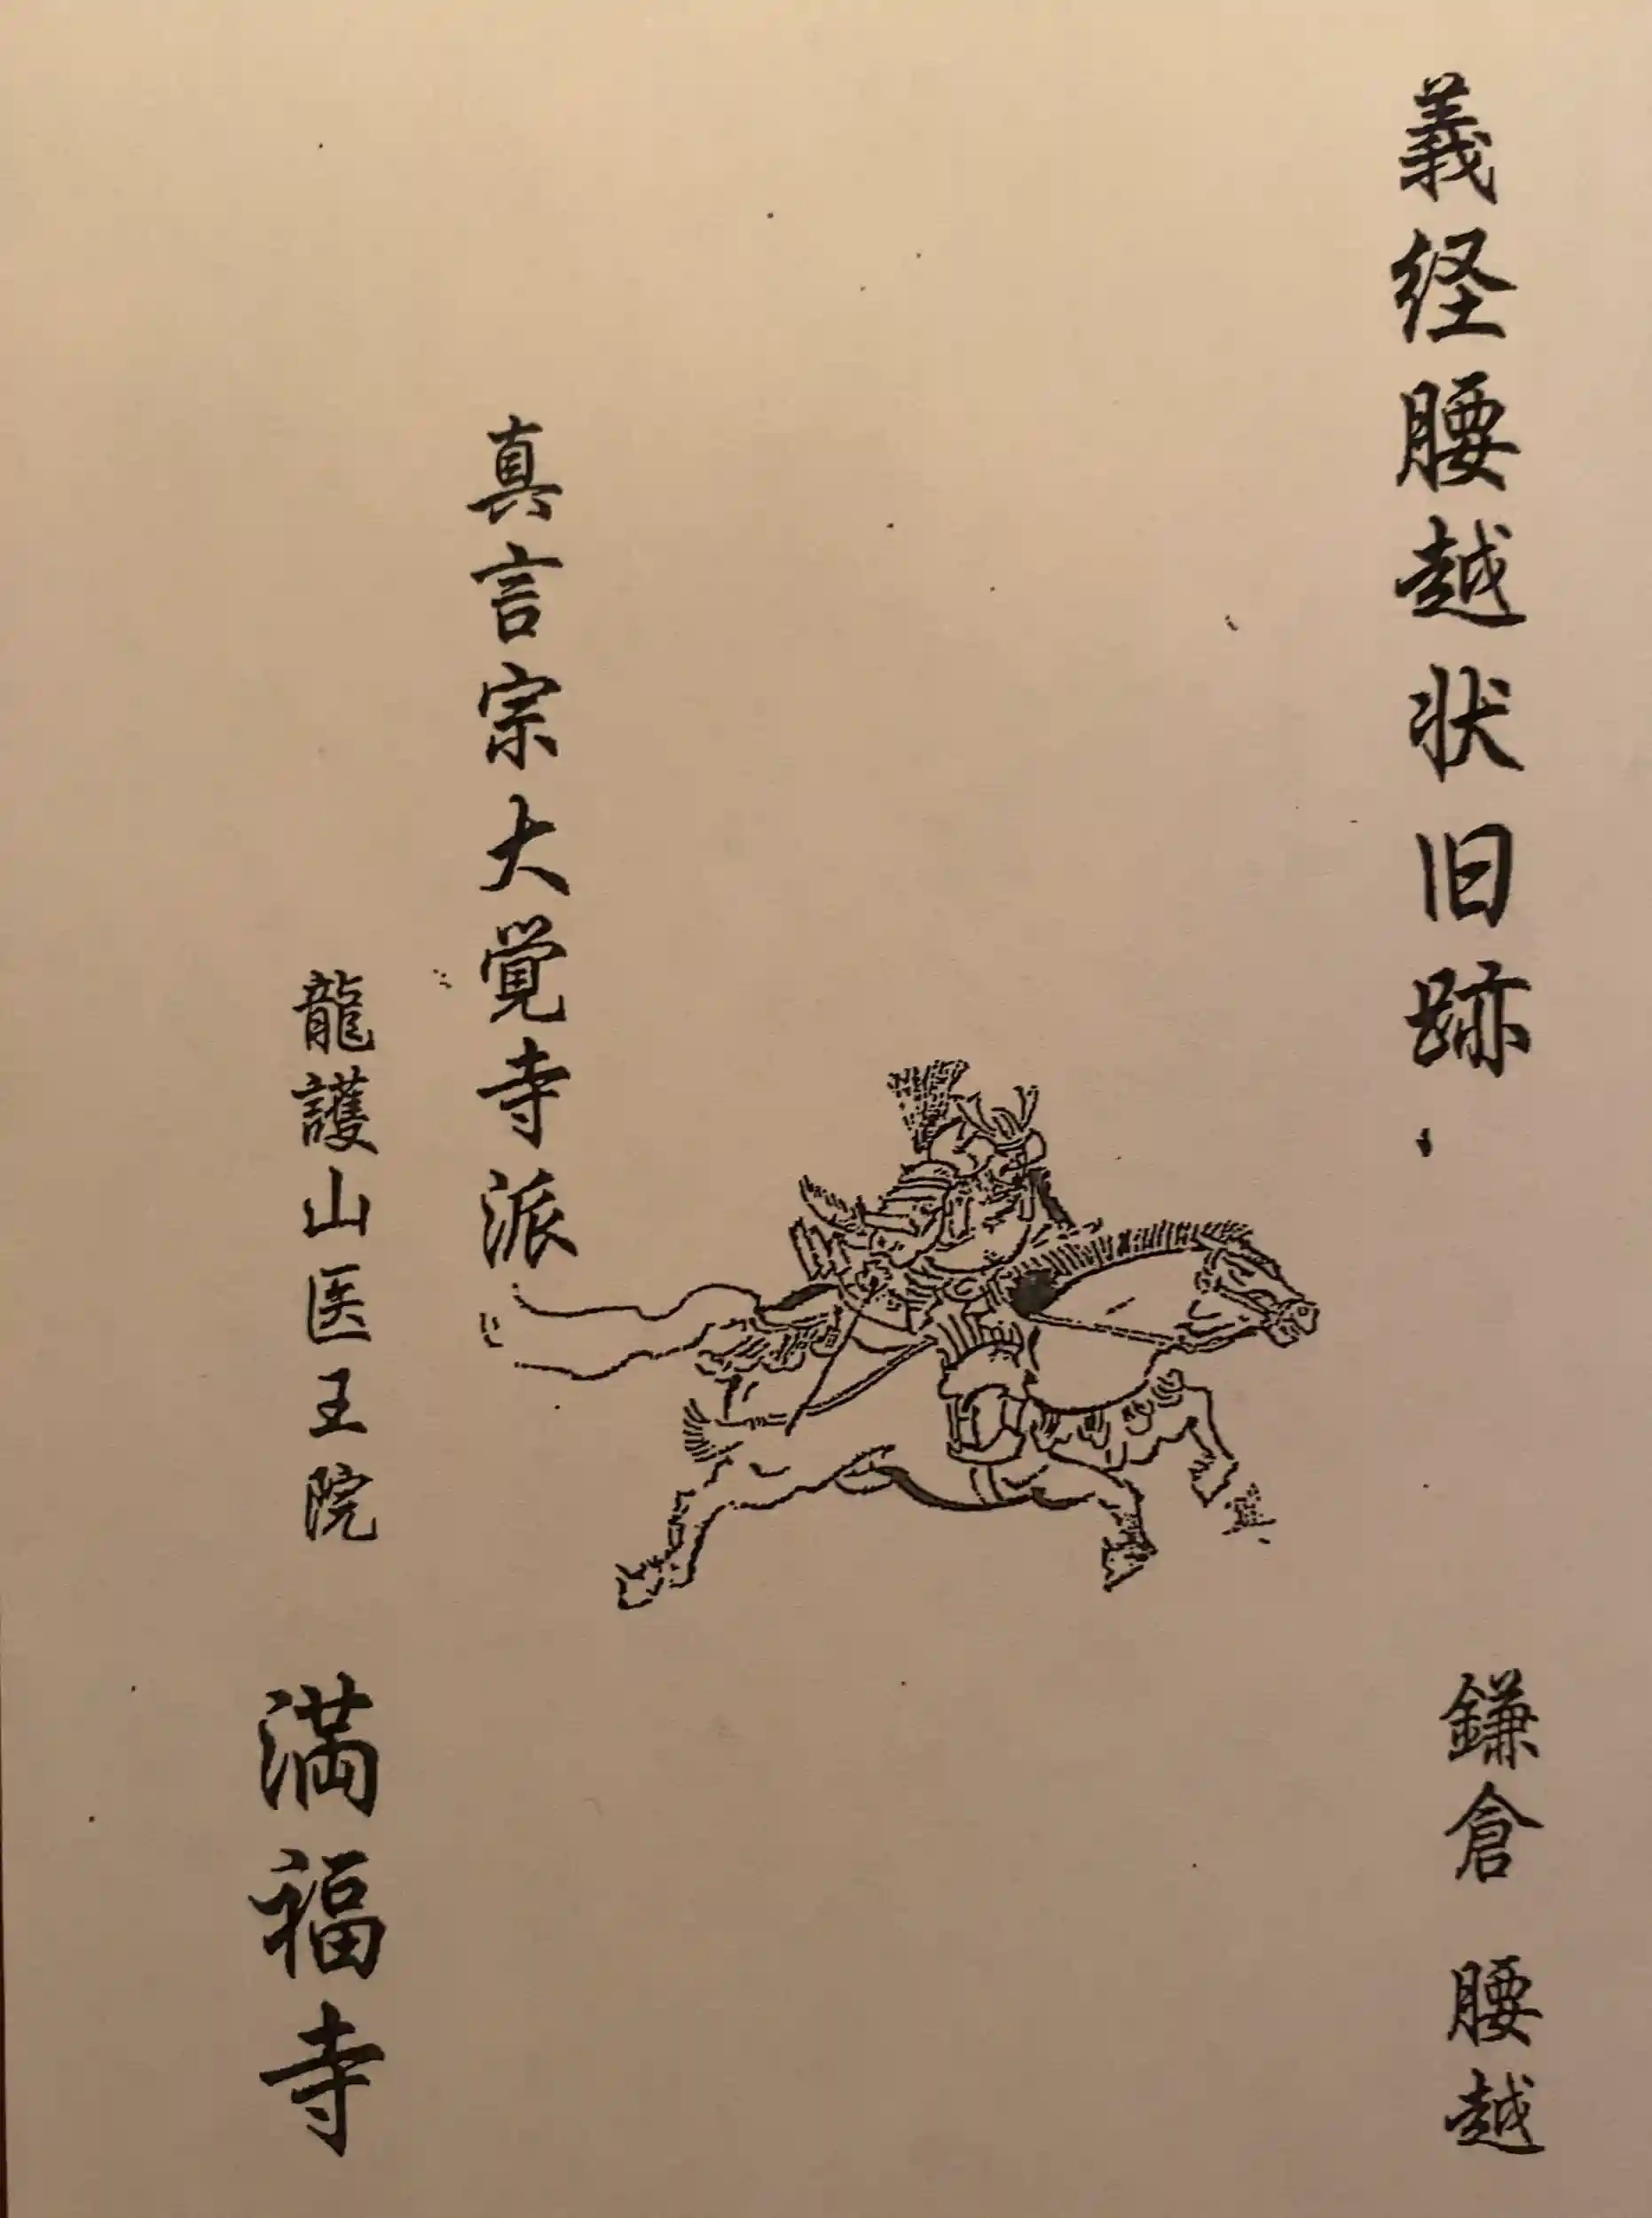 義経腰越状旧跡
鎌倉 腰越
真言宗大覚寺派
龍護山医王院 満福寺